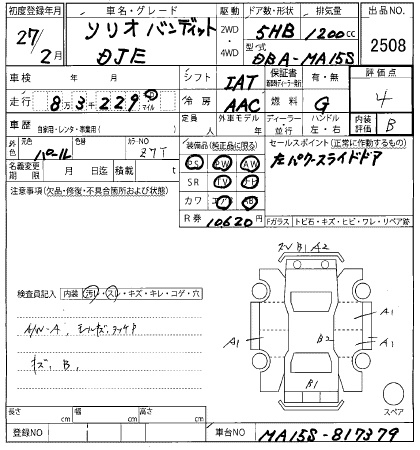 初度登録年月 車名・グレード 駆動 ドア数・形状 排気量 出品NO.
27/2月 ソリオ バンディット DJE 2WD・4WD 5HB 1200cc 2508
型式 DBA-MA15S
車検 年 月 シフト IAT 保証書 有・無 評価点 4
走行 8万3千229 マイル 冷房 AAC 燃料 G
車歴 自家用・レンタ・事業用( ) 定員 人 外車モデル 年 ディーラー 並行 ハンドル 左・右 内装評価 B
外色 元色 パール 色替 カラーNO 27T
装備品(純正品に限る) セールスポイント(正常に作動するもの)
PS PW AW 左パワースライドドア
名義変更期限 月 日迄 積載 t SR TV ナビ
注意事項(欠品・修復・不具合箇所および状態) カワ エアB AB
R券 10620円 Fガラス トビ石・キズ・ヒビ・ワレ・リペア跡
B1 A2
検査員記入 内装 汚レ・スレ・キズ・キレ・コゲ・穴
A/W-A
キズ、B、
A1 B2 A1
A1
B1
スペア
長さ cm 幅 cm 高さ cm
登録NO 車台NO MA15S-817379